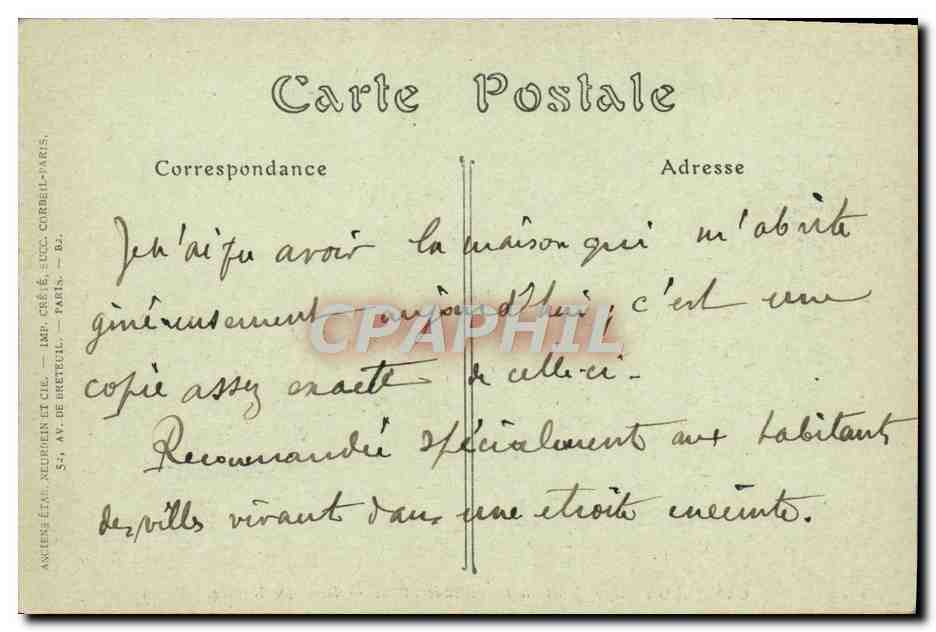 Carte Postale
Correspondance
Adresse
Je n'ai pu avoir la maison qui m'abrite
généreusement aujourd'hui, c'est une
copie assez exacte de celle-ci.
Recommandée spécialement aux habitants
des villes vivant dans une etroite enceinte.
CPAPHIL
ANCIENS ETAB. NEURDEIN ET CIE. — IMP. CRÉTÉ, SUCC. CORBEIL-PARIS.
52, AV. DE BRETEUIL. — PARIS. — B2.